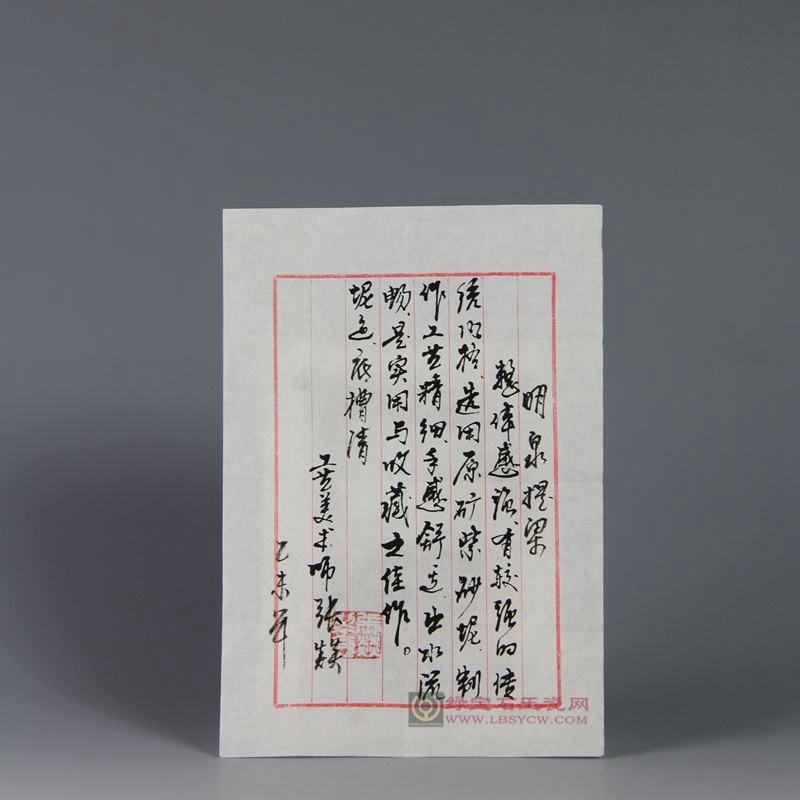 明泉提梁
整体感强，有较强的传
统风格，选用原矿紫砂泥，制
作工艺精细，手感舒适，出水流
畅，是实用与收藏之佳作。
泥色：底槽清
工艺美术师 张燚
乙未年
绿宝石玉瓷网
WWW.LBSYCW.COM